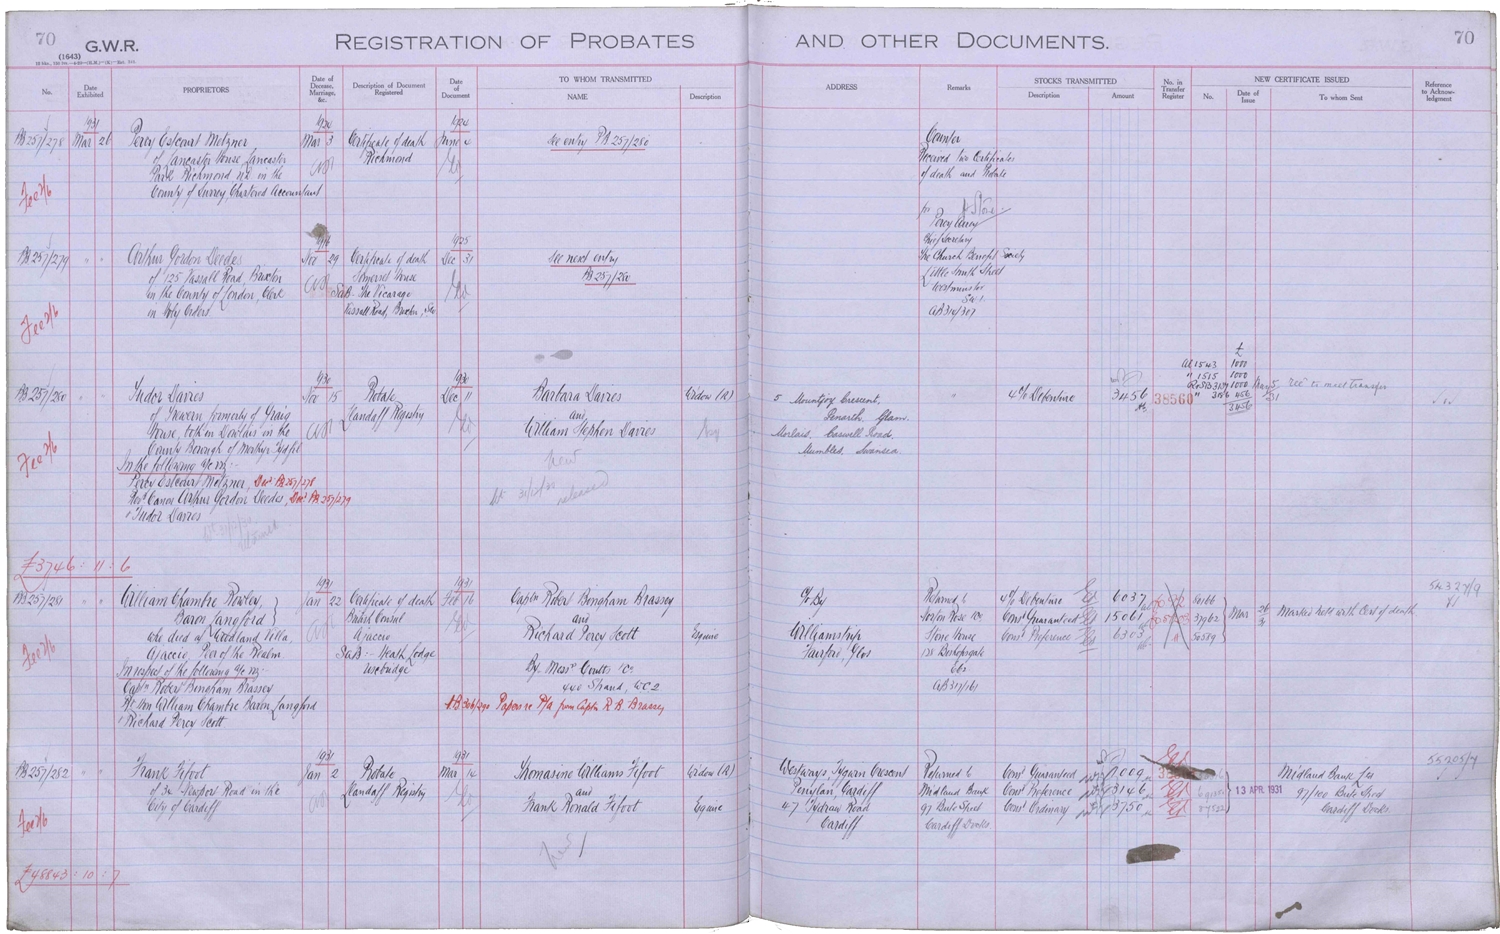 70
G.W.R.
(1643)
REGISTRATION OF PROBATES AND OTHER DOCUMENTS.
70
No.
Date Exhibited
PROPRIETORS
Date of Decease, Marriage, &c.
Description of Document Registered
Date of Document
TO WHOM TRANSMITTED
NAME
Description
ADDRESS
Remarks
STOCKS TRANSMITTED
Description
Amount
No. in Transfer Register
NEW CERTIFICATE ISSUED
No.
Date of Issue
To whom Sent
Reference to Acknowledgment
1931
1924
1924
PB 257/278 Mar 26 Percy Estcourt Metzner Mar 3 Certificate of death June 4 See entry PB 257/280 Counter
of Lancaster House, Lancaster Richmond Received two Certificates
Park Richmond in the of death and Probate
Fee 2/6
County of Surrey, Chartered Accountant
for
Percy
Chief Secretary
1925
PB 257/279 " " Arthur Gordon Deedes Nov 29 Certificate of death Dec 31 See next entry The Church Benefit Society
of 125 Vassall Road, Brixton Somerset House PB 257/280 Little Smith Street
in the County of London, Clerk S&B - The Vicarage Westminster
in Holy Orders Vassall Road, Brixton, S.W. S.W.1.
Fee 2/6
AB 314/307
£
1543 1000
" 1515 1000
1930
1930
PB 257/280 " " Tudor Davies Nov 15 Probate Dec 11 Barbara Davies Widow (R) 5 Mountjoy Crescent, " 4% Debenture 3456 38560 " 456
of Gwaern formerly of Graig Llandaff Registry and Penarth, Glam. 3456
House, both in Dowlais in the William Stephen Davies Morlais, Caswell Road,
County Borough of Merthyr Tydfil Mumbles, Swansea
Fee 2/6
In the following a/c viz:-
Percy Estcourt Metzner, Decd PB 257/278
Revd Canon Arthur Gordon Deedes, Decd PB 257/279
& Tudor Davies
released
£3746 : 11 : 6
1931
1931
54327/9
PB 257/281 " " William Chambre Rowley, Jan 22 Certificate of death Feb 16 Captn Robert Bingham Brassey c/o By Returned to 4% Debenture 6037 60166
Baron Langford British Consul and Norton Rose &Co Cons Guaranteed 15061 37962 Mar 26 Marked held with Cert of death
who died at Woodland Villa, Ajaccio Richard Percy Scott Esquire Williamstrip Stone House Cons Preference 6303 50539 31
Ajaccio, Peer of the Realm S&B :- Heath Lodge Fairford, Glos 138 Bishopsgate
Fee 2/6
In respect of the following a/c viz:- Uxbridge By Messrs Coutts &Co
Captn Robert Bingham Brassey 440 Strand, W.C.2 AB 317/161
Rt Hon William Chambre Baron Langford Papers re P/a from Captn R. B. Brassey
& Richard Percy Scott
1931
1931
55205/7
PB 257/282 " " Frank Fifoot Jan 2 Probate Mar 14 Thomasine Williams Fifoot Widow (R) Westways, Tygwyn Crescent Returned to Cons Guaranteed 1009 Midland Bank Ltd
of 34 Newport Road in the Llandaff Registry and Penylan, Cardiff Midland Bank Cons Preference 13146 13 APR. 1931 97/100 Bute Street
City of Cardiff Frank Ronald Fifoot Esquire 47 Tydraw Road 97 Bute Street Cons Ordinary 13750 Cardiff Docks.
Cardiff Cardiff Docks.
Fee 2/6
£48843 : 10 : 7